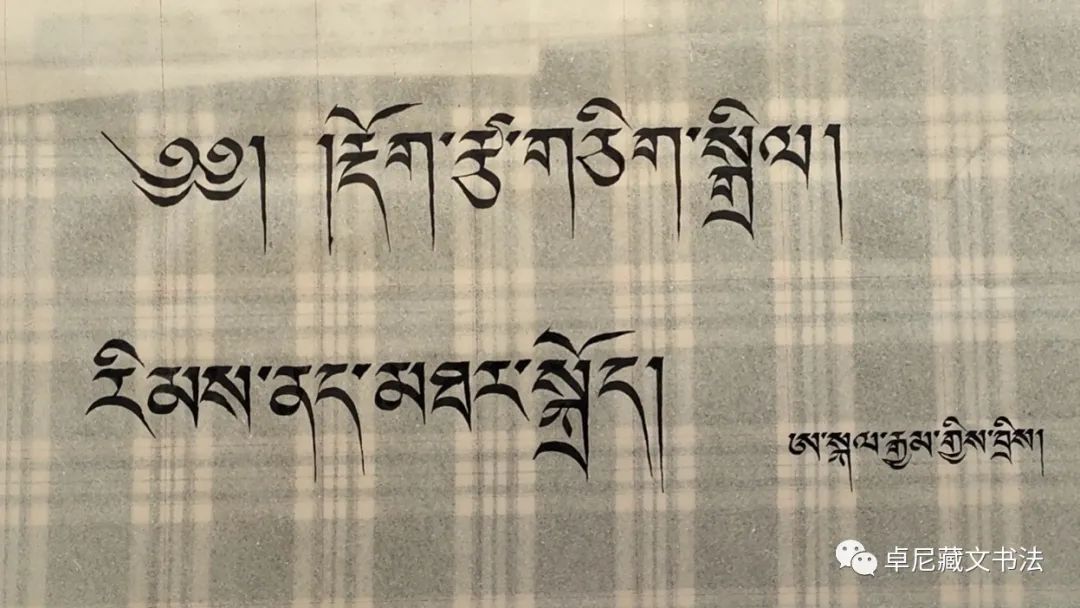 ༄༅། །རྡོག་རྩ་གཅིག་སྒྲིལ།
རིམས་ནད་མཐར་སྐྲོད།
ཨ་སྐལ་རྒྱམ་གྱིས་བྲིས།
卓尼藏文书法